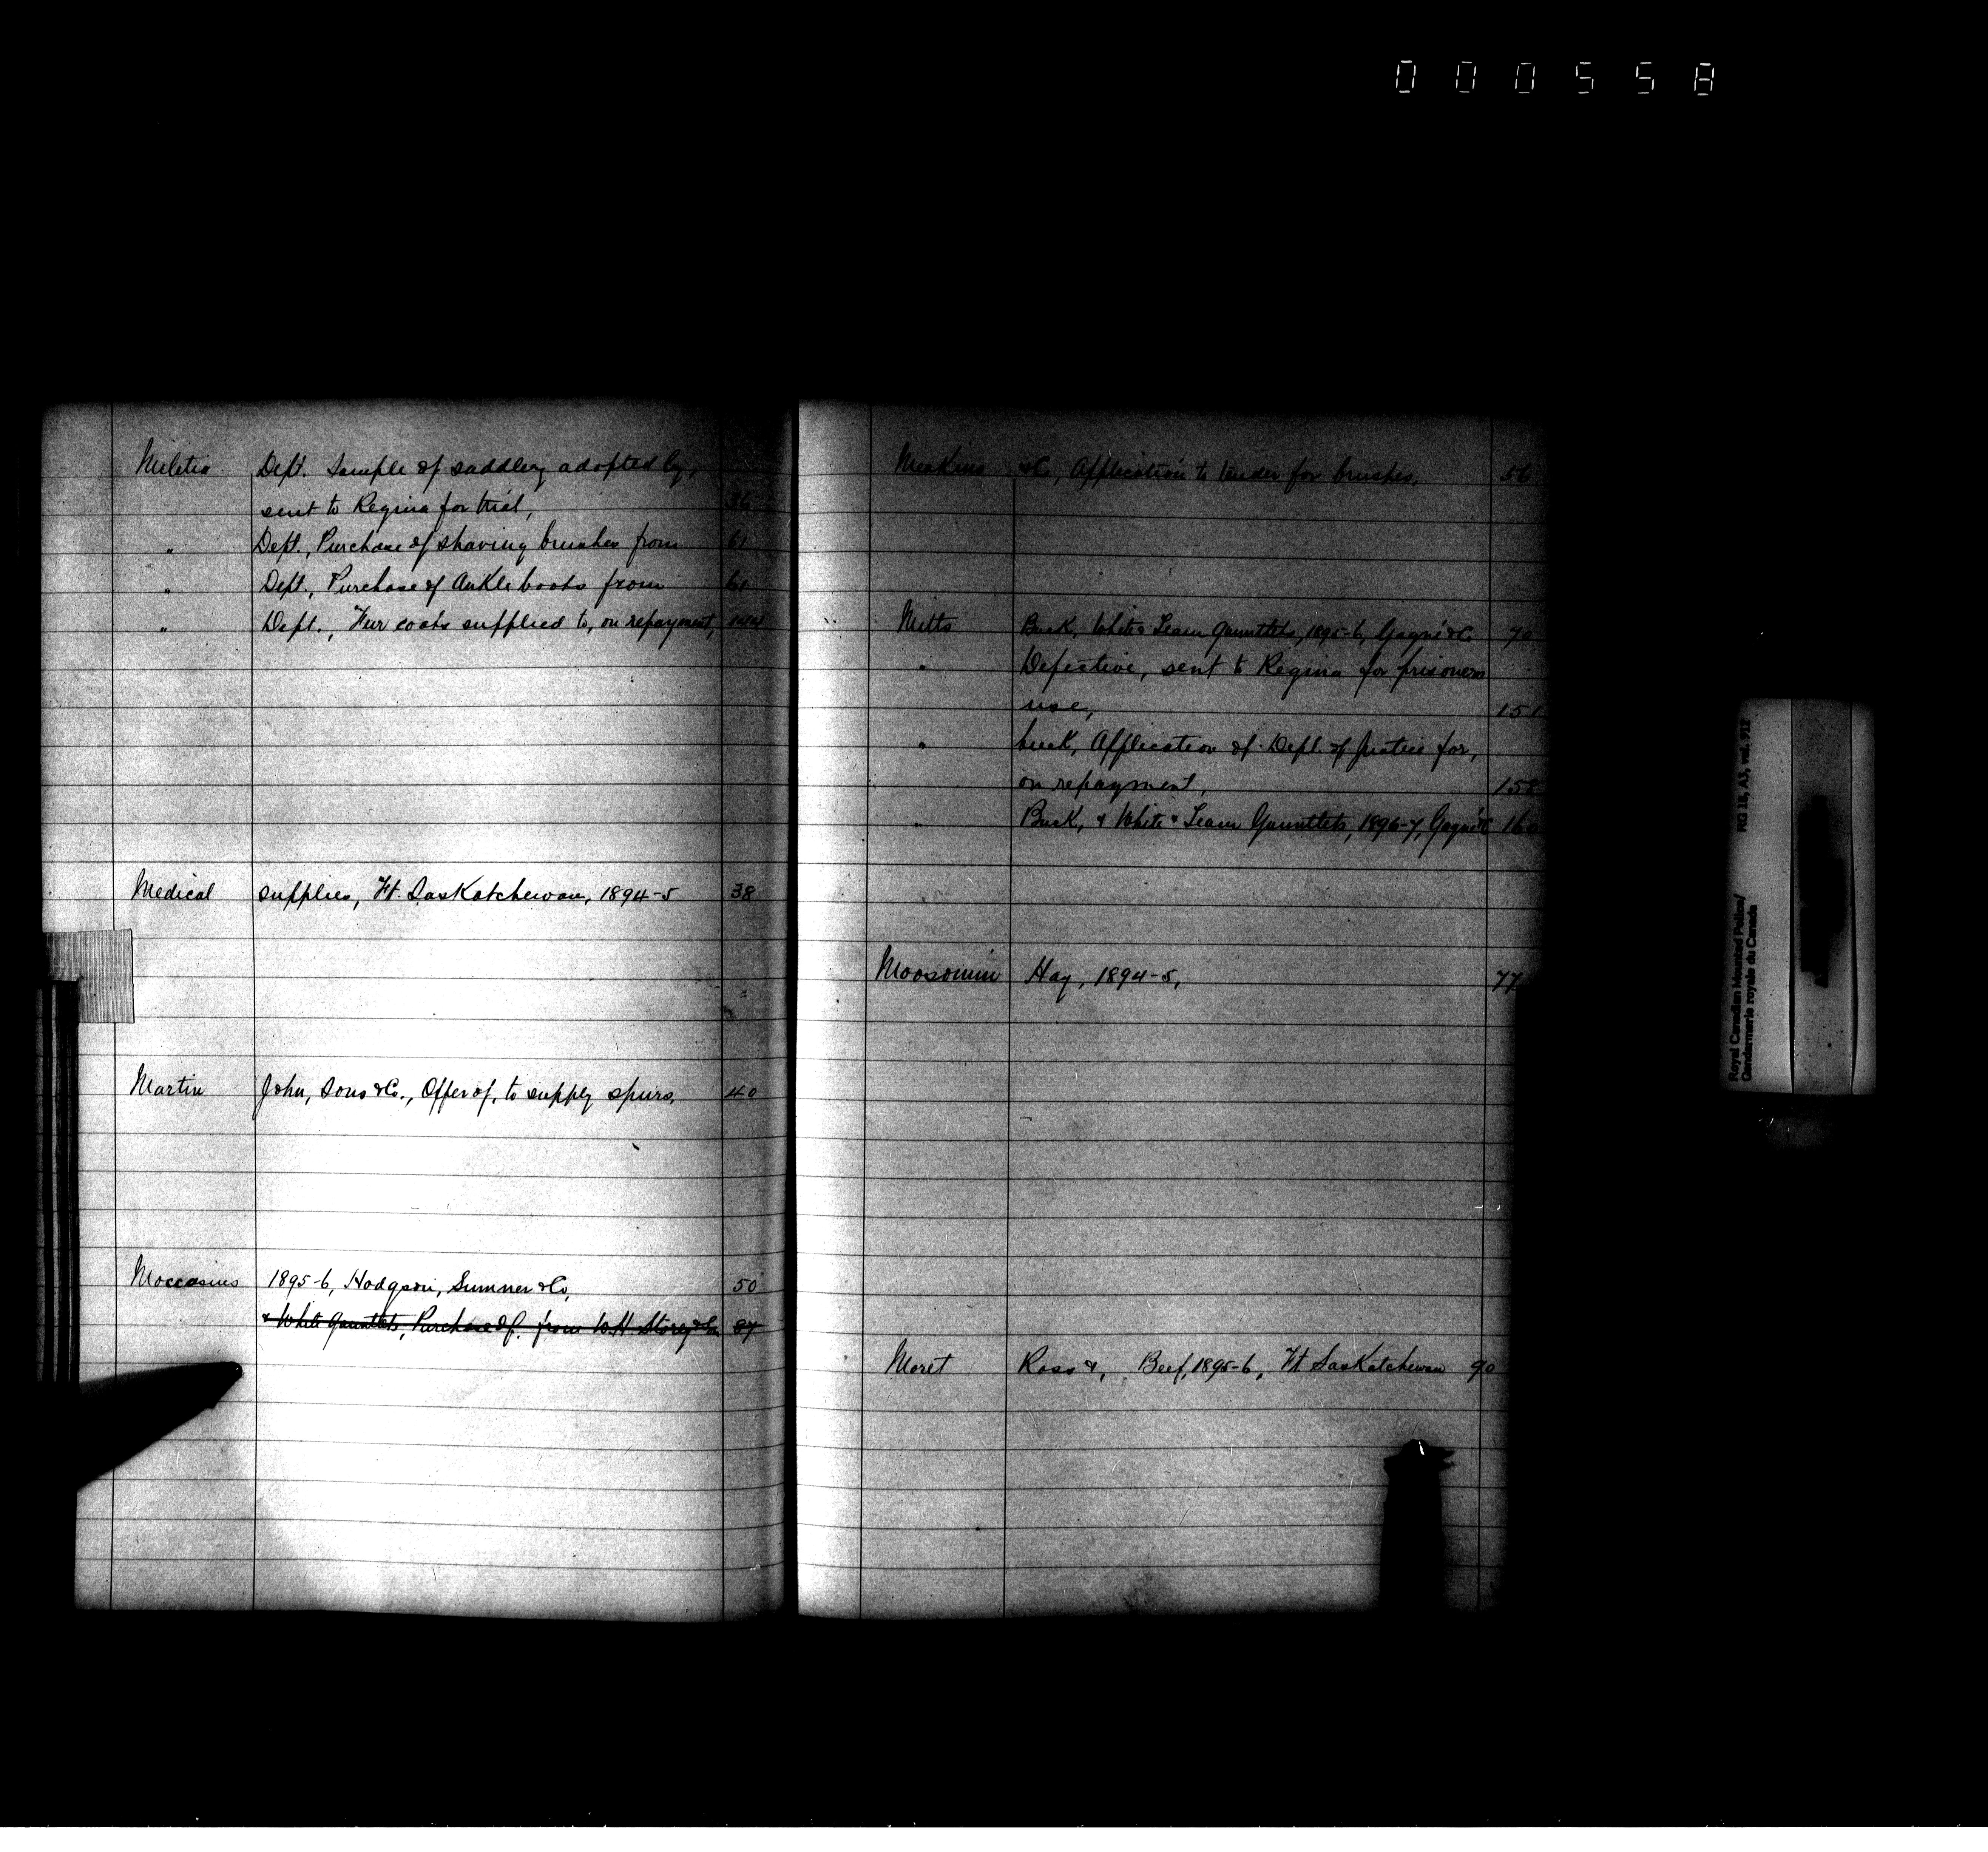 000558
Militia Dept. Sample of saddlery adopted by,
sent to Regina for trial, 36
" Dept., Purchase of shaving brushes from 61
" Dept., Purchase of Ankle boots from 61
" Dept., Fur coats supplied to, on repayment, 144
Medical supplies, Ft. Saskatchewan, 1894-5 38
Martin John, Sons & Co., Offer of, to supply spurs, 40
Moccasins 1895-6, Hodgson, Sumner & Co, 50
& White Gauntlets, Purchase of, from W.H Storey & Son 87
Meakins & Co, Application to tender for brushes, 56
Mitts Buck, White & Team Gauntlets, 1895-6, Gagné & Co. 70
" Defective, sent to Regina for prisoners
use, 151
" buck, Application of Dept. of Justice for,
on repayment, 158
" Buck, & White & Team Gauntlets, 1896-7, Gagné & Co 160
Moosomin Hay, 1894-5, 77
Moret Ross &, Beef, 1895-6, Ft Saskatchewan 90
Royal Canadian Mounted Police/
Gendarmerie royale du Canada
RG 18, A3, vol. 912